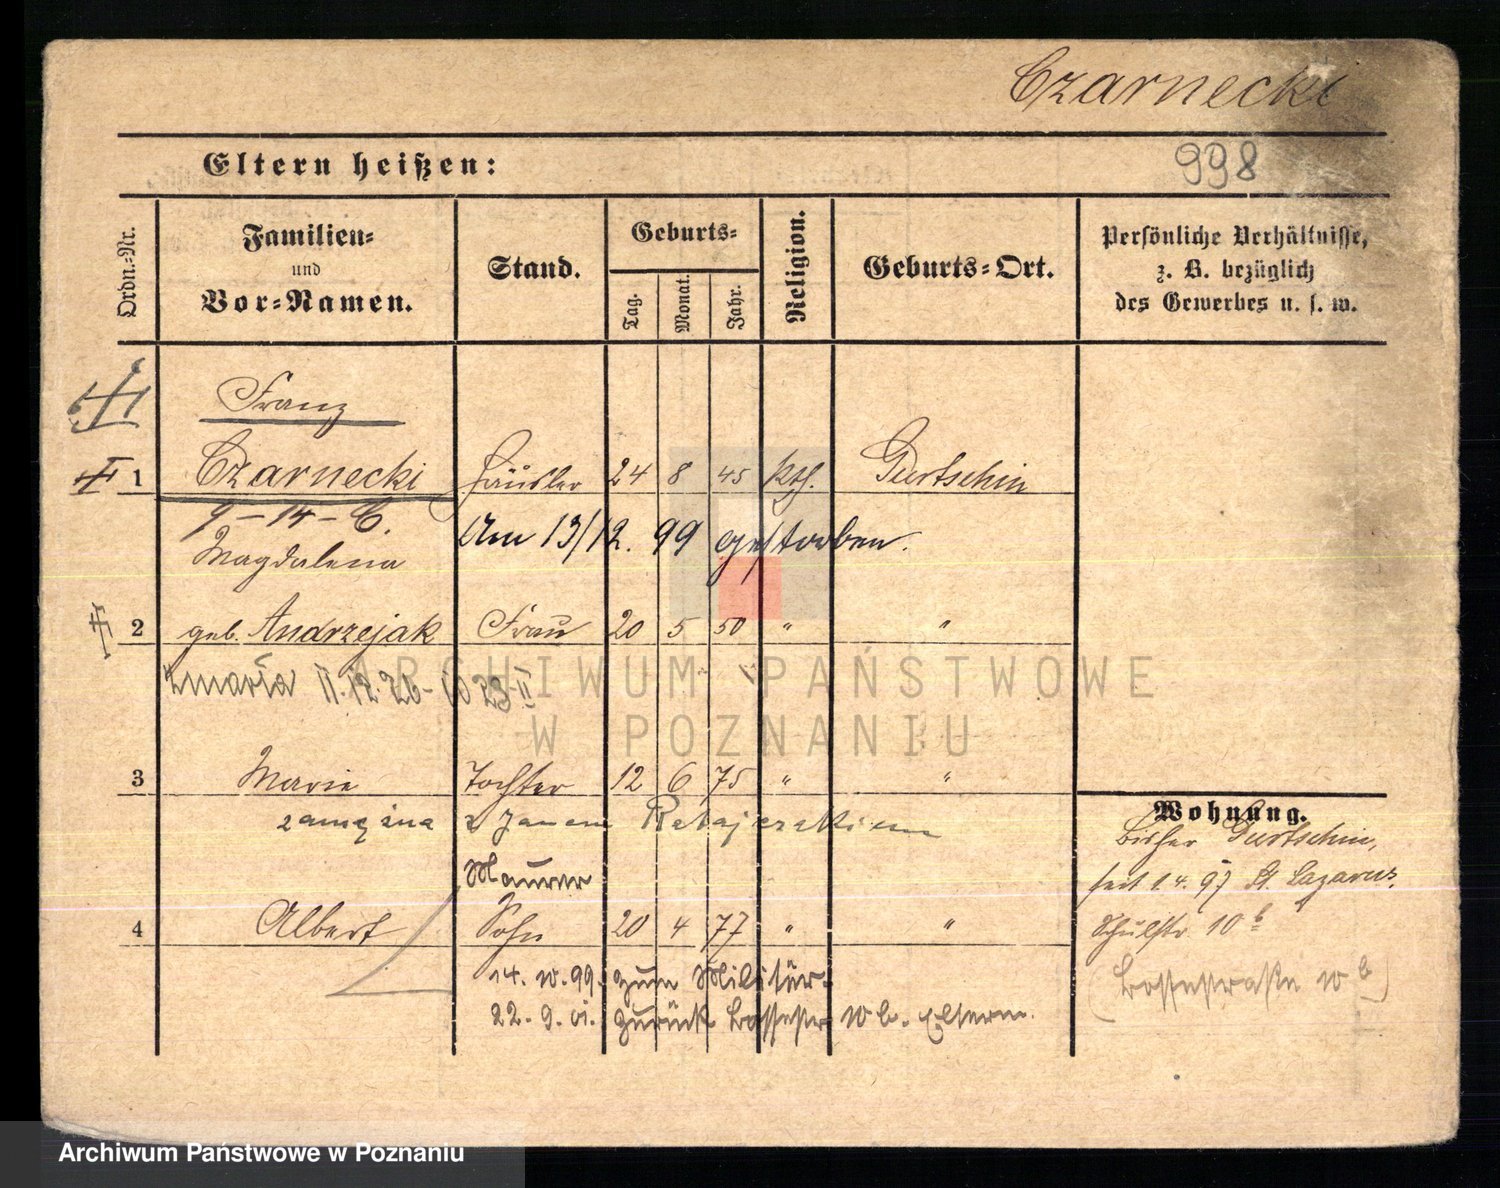 Czarnecki
Eltern heißen:
998
Ordn.-Nr.
Familien-
und
Vor-Namen.
Stand.
Geburts-
Tag.
Monat.
Jahr.
Religion.
Geburts-Ort.
Persönliche Verhältnisse,
z. B. bezüglich
des Gewerbes u. s. w.
Franz
1 Czarnecki Häusler 24 8 45 kth. Gurtschin
9-14-C.
Am 13/12. 99 gestorben.
Magdalena
2 geb. Andrzejak Frau 20 5 50 " "
zmarła
ARCHIWUM PAŃSTWOWE
W POZNANIU
3 Marie Tochter 12 6 75 " "
zamężna z Janem Ratajczakiem
Maurer
4 Albert Sohn 20 4 77 " "
14. 10. 99. zum Militär.
22. 9. 01. zurück 10 b. Eltern.
Wohnung.
bisher Gurtschin,
seit 1.4.97 St. Lazarus,
Schulstr. 10 b
Archiwum Państwowe w Poznaniu